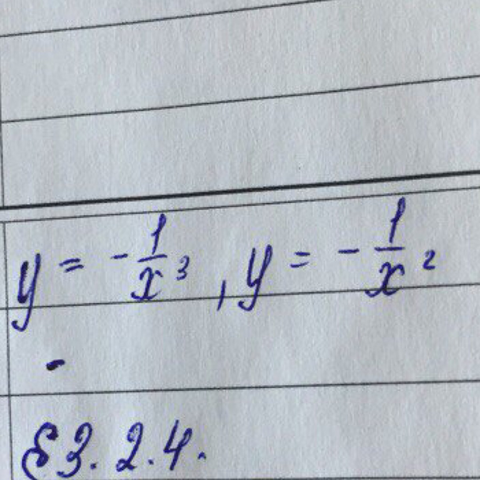 y = -1/x³, y = -1/x²
-
§3.2.4.